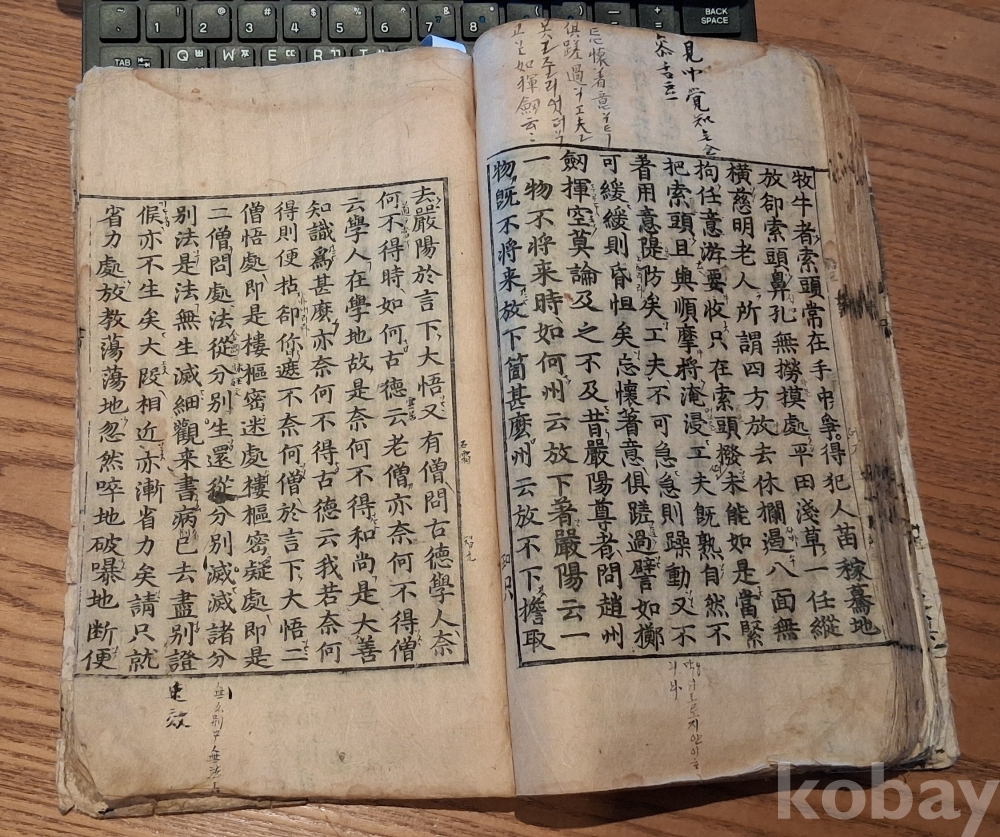 BACK
SPACE
TAB
Q W E R
忘懷着意
俱蹉過 工夫
如揮劒云
見中覺知
牧牛者索頭常在手中爭得犯人苗稼驀地
放卻索頭鼻孔無撈摸處平田淺草一任縱
橫慈明老人所謂四方放去休攔遏八面無
拘任意游要收只在索頭撥未能如是當緊
把索頭且與順摩將淹浸工夫既熟自然不
著用意隄防矣工夫不可急急則躁動又不
可緩緩則昏怛矣忘懷著意俱蹉過譬如擲
劒揮空莫論及之不及昔嚴陽尊者問趙州
一物不將来時如何州云放下著嚴陽云一
物旣不將来放下箇甚麽州云放不下擔取
去嚴陽於言下大悟又有僧問古德學人奈
何不得時如何古德云老僧亦奈何不得僧
云學人在學地故是奈何不得和尚是大善
知識爲甚麽亦奈何不得古德云我若奈何
得則便拈卻你遮不奈何僧於言下大悟二
僧悟處即是樓樞密迷處樓樞密疑處即是
二僧問處法從分別生還從分別滅滅諸分
別法是法無生滅細觀来書病已去盡別證
候亦不生矣大段相近亦漸省力矣請只就
省力處放教蕩蕩地忽然啐地破曝地断便
速效
kobay